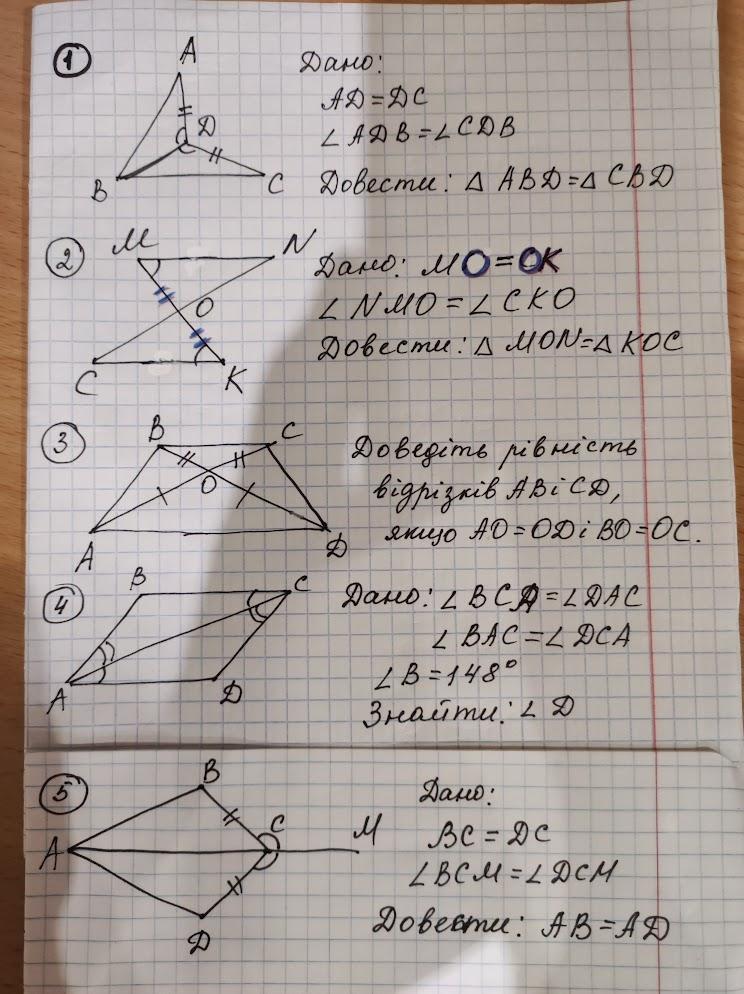 1
A
D
B
C
Дано:
AD=DC
∠ADB=∠CDB
Довести: △ABD=△CBD
2
M
N
O
C
K
Дано: MO=OK
∠NMO=∠CKO
Довести: △MON=△KOC
3
B
C
O
A
D
Доведіть рівність
відрізків AB і CD,
якщо AO=OD і BO=OC.
4
B
C
A
D
Дано: ∠BCA=∠DAC
∠BAC=∠DCA
∠B=148°
Знайти: ∠D
5
B
C
M
A
D
Дано:
BC=DC
∠BCM=∠DCM
Довести: AB=AD